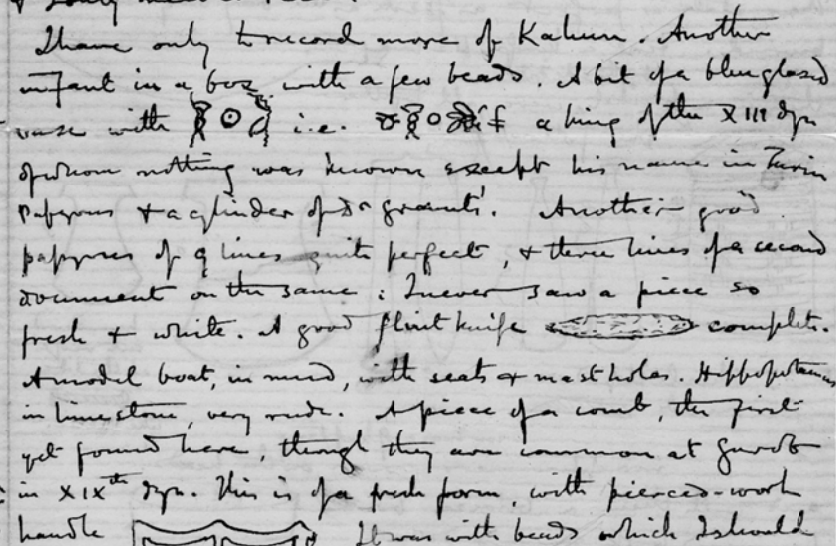 I have only to record more of Kahun. Another
infant in a box with a few beads. A bit of a blue glazed
vase with i.e. a king of the XIII dyn
of whom nothing was known except his name in Turin
Papyrus & a cylinder of Dr Grant's. Another good
papyrus of 9 lines quite perfect, & three lines of a second
document on the same : I never saw a piece so
fresh & white. A good flint knife complete.
A model boat, in mud, with seats & mast holes. Hippopotamus
in limestone, very rude. A piece of a comb, the first
yet found here, though they are common at Gurob
in XIXth dyn. This is of a fresh form, with pierced-work
handle It was with beads which I should